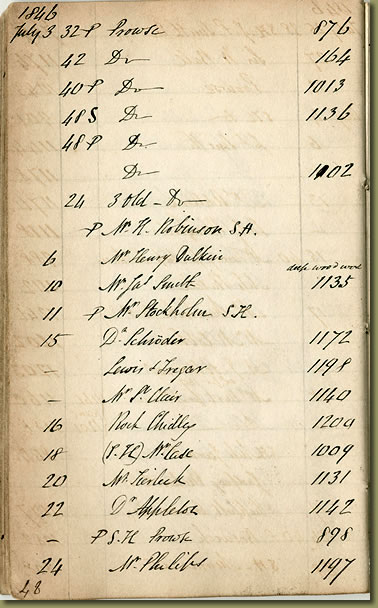 1846
July 3 32 P Prowse 876
42 Do 164
40 P Do 1013
48 S Do 1136
48 P Do
Do 1002
24 3 old - Do
P Mr H. Robinson S.H.
6 Mr Henry
wood
10 Mr Jas Smith 1135
11 P Mr Stockholm S.H.
15 Dr Schröder 1172
- Lewis & Tregar 1198
- Mr St Clair 1140
16 Rock Chidley 1200
18 Mr Case 1009
20 Mr 1131
22 Dr Appleton 1142
- P S.H Prowse 898
24 Mr Philibs 1197
48